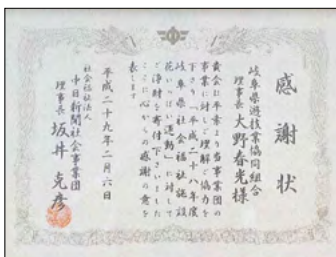 感謝状
岐阜県遊技業協同組合
理事長 大野春光様
貴会に平素より当事業団の
事業に対しご理解ご協力を
下さり「平成二十八年度
岐阜県社会福祉施設
花いっぱい運動」に対して
ご浄財を寄付下さいました
ここに心からの感謝の意を
表します
平成二十九年二月六日
社会福祉法人
中日新聞社会事業団
理事長 坂井克彦